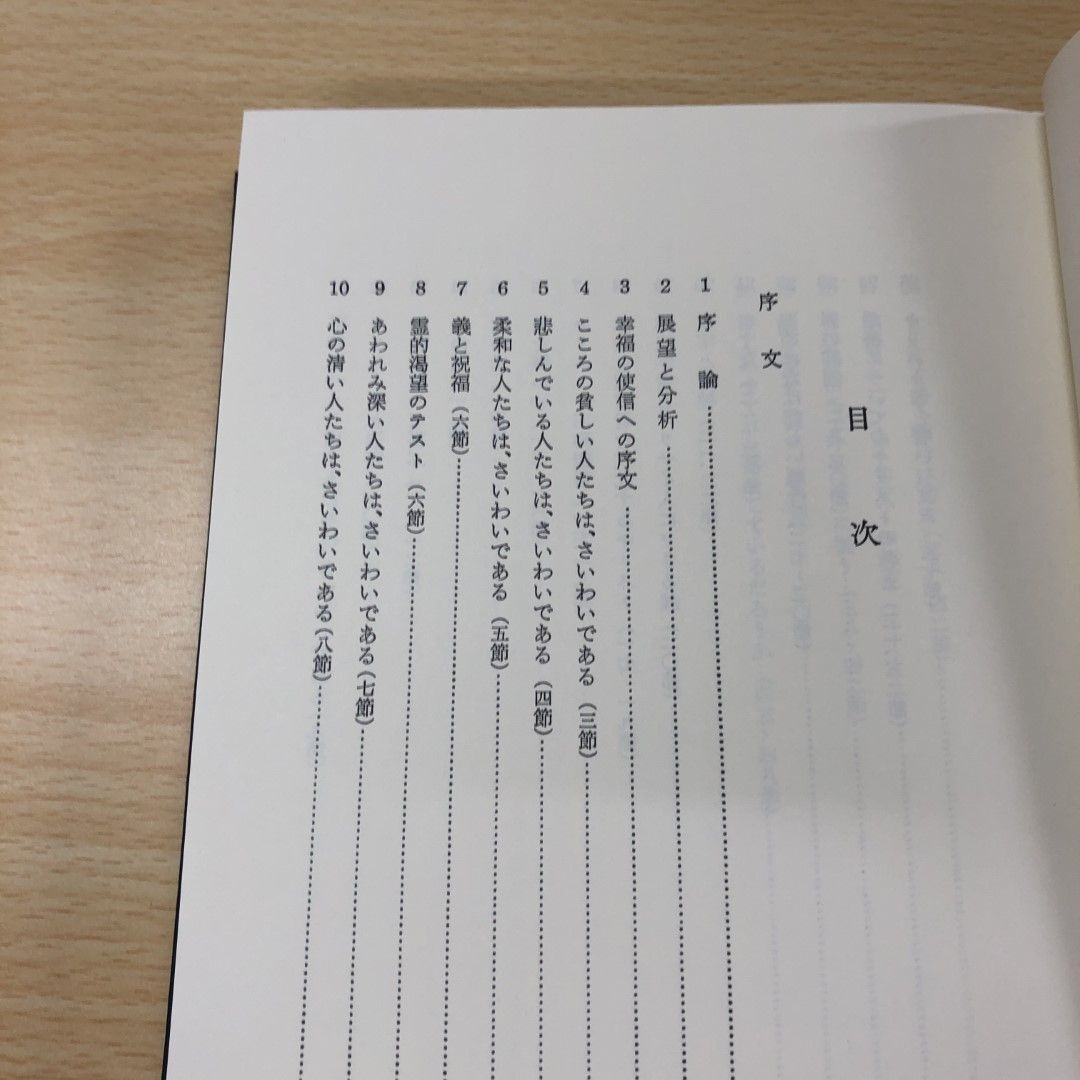 目次
序文
1 序論
2 展望と分析
3 幸福の使信への序文
4 こころの貧しい人たちは、さいわいである (三節)
5 悲しんでいる人たちは、さいわいである (四節)
6 柔和な人たちは、さいわいである (五節)
7 義と祝福 (六節)
8 霊的渇望のテスト (六節)
9 あわれみ深い人たちは、さいわいである (七節)
10 心の清い人たちは、さいわいである (八節)